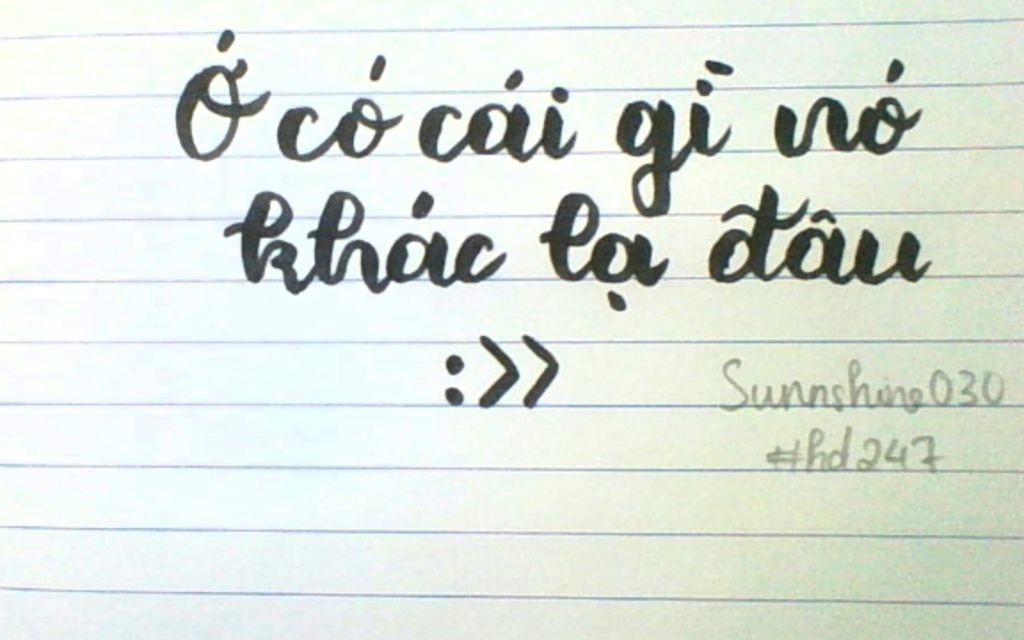 Ớ có cái gì nó
khác lạ đâu
:>>
Sunnshine030
#hd247